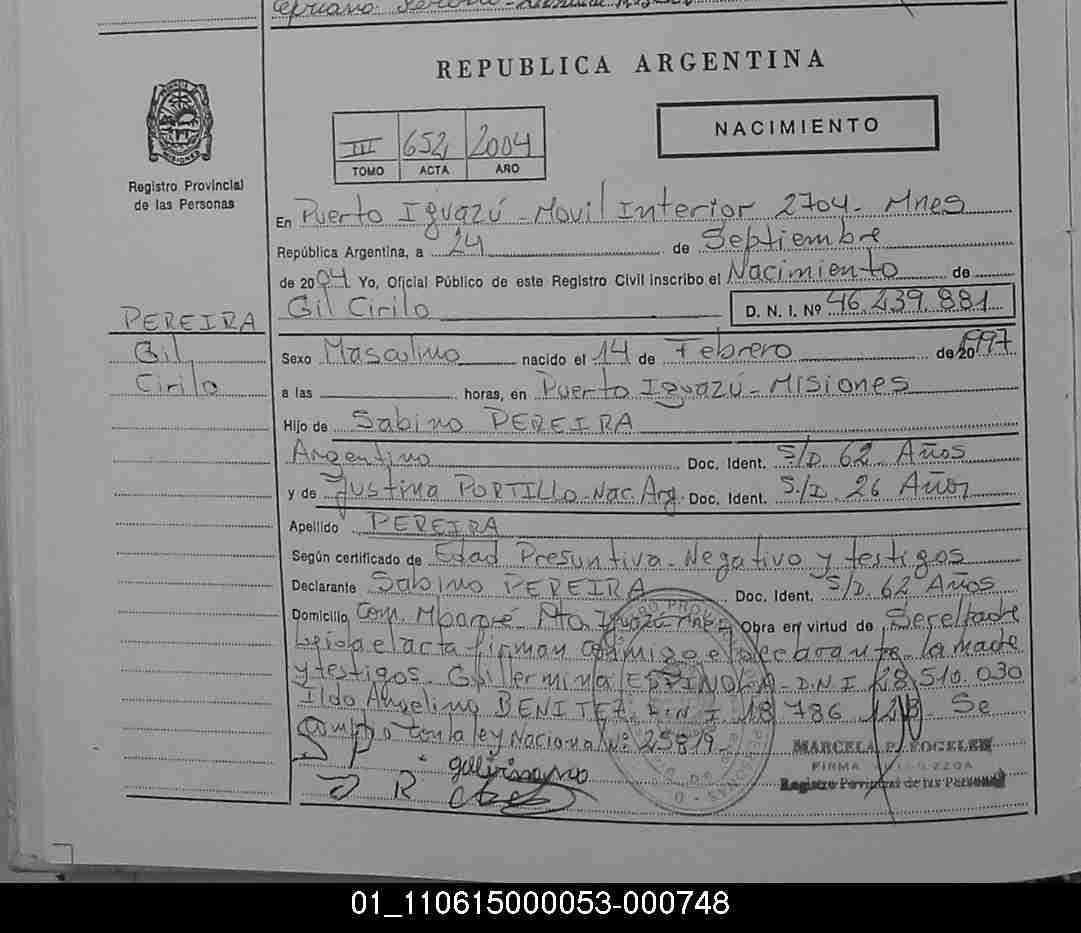 Cipriano
REPUBLICA ARGENTINA
MISIONES
Registro Provincial
de las Personas
III 652 2004
TOMO ACTA AÑO
NACIMIENTO
En Puerto Iguazú - Movil Interior 2704 - Mnes
República Argentina, a 24 de Septiembre
de 2004 Yo, Oficial Público de este Registro Civil inscribo el Nacimiento de
Gil Cirilo D. N. I. Nº 46.239.881
PEREIRA
Gil
Cirilo
Sexo Masculino nacido el 14 de Febrero de 20 1997
a las horas, en Puerto Iguazú - Misiones
Hijo de Sabino PEREIRA
Argentino Doc. Ident. S/D. 62 Años
y de Justina PORTILLO - Nac. Arg. Doc. Ident. S/D. 26 Años
Apellido PEREIRA
Según certificado de Edad Presuntiva - Negativo y testigos
Declarante Sabino PEREIRA Doc. Ident. S/D. 62 Años
Domicilio Com. Mbororé Pto. Iguazú Mnes Obra en virtud de Ser el padre
leida el acta firman conmigo el declarante, la madre
y testigos. Guillermina ESPINOLA - D.N.I 28.510.030
Ildo Anselmo BENITEZ D.N.I. 18.786. Se
cumplio con la ley Nacional Nº 25819.
MARCELA P. FOGELER
FIRMA AUTORIZADA
Registro Provincial de las Personas
01_110615000053-000748